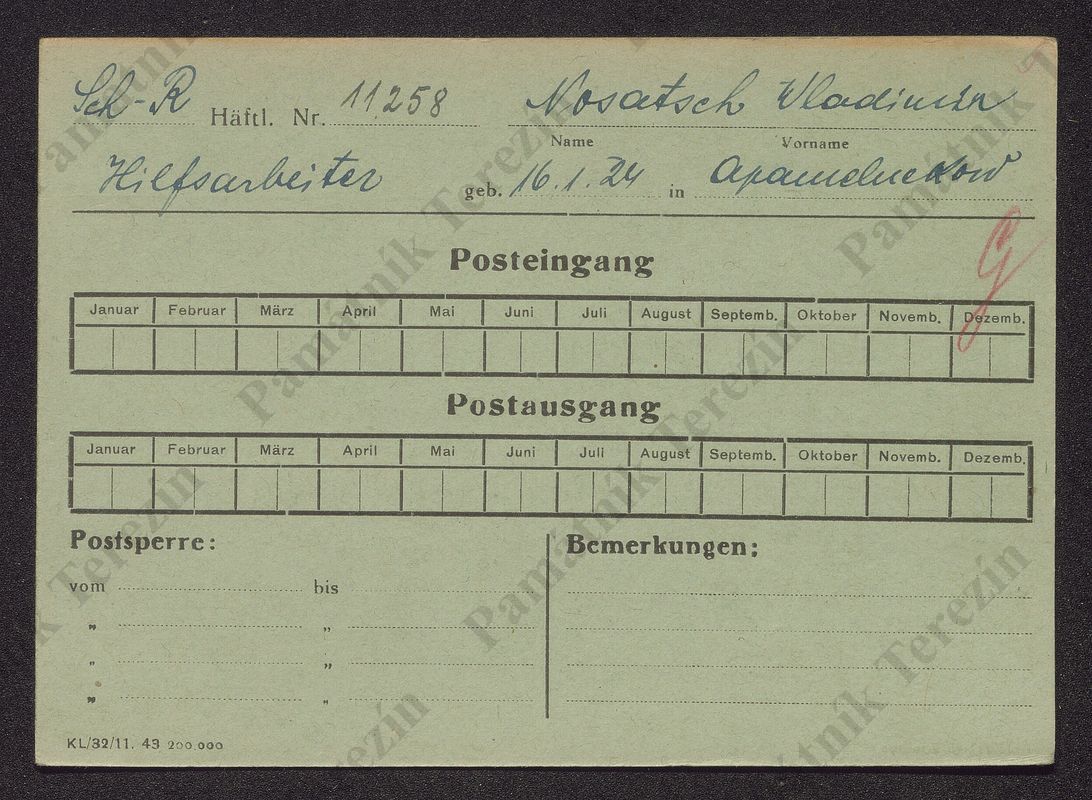 Sch-R Häftl. Nr. 11258 Nosatsch Wladimir
Name Vorname
Hilfsarbeiter geb. 16.1.24 in
Posteingang
Januar Februar März April Mai Juni Juli August Septemb. Oktober Novemb. Dezemb.
Postausgang
Januar Februar März April Mai Juni Juli August Septemb. Oktober Novemb. Dezemb.
Postsperre: Bemerkungen:
vom bis
„ „
„ „
„ „
KL/32/11. 43 200.000
Památník Terezín